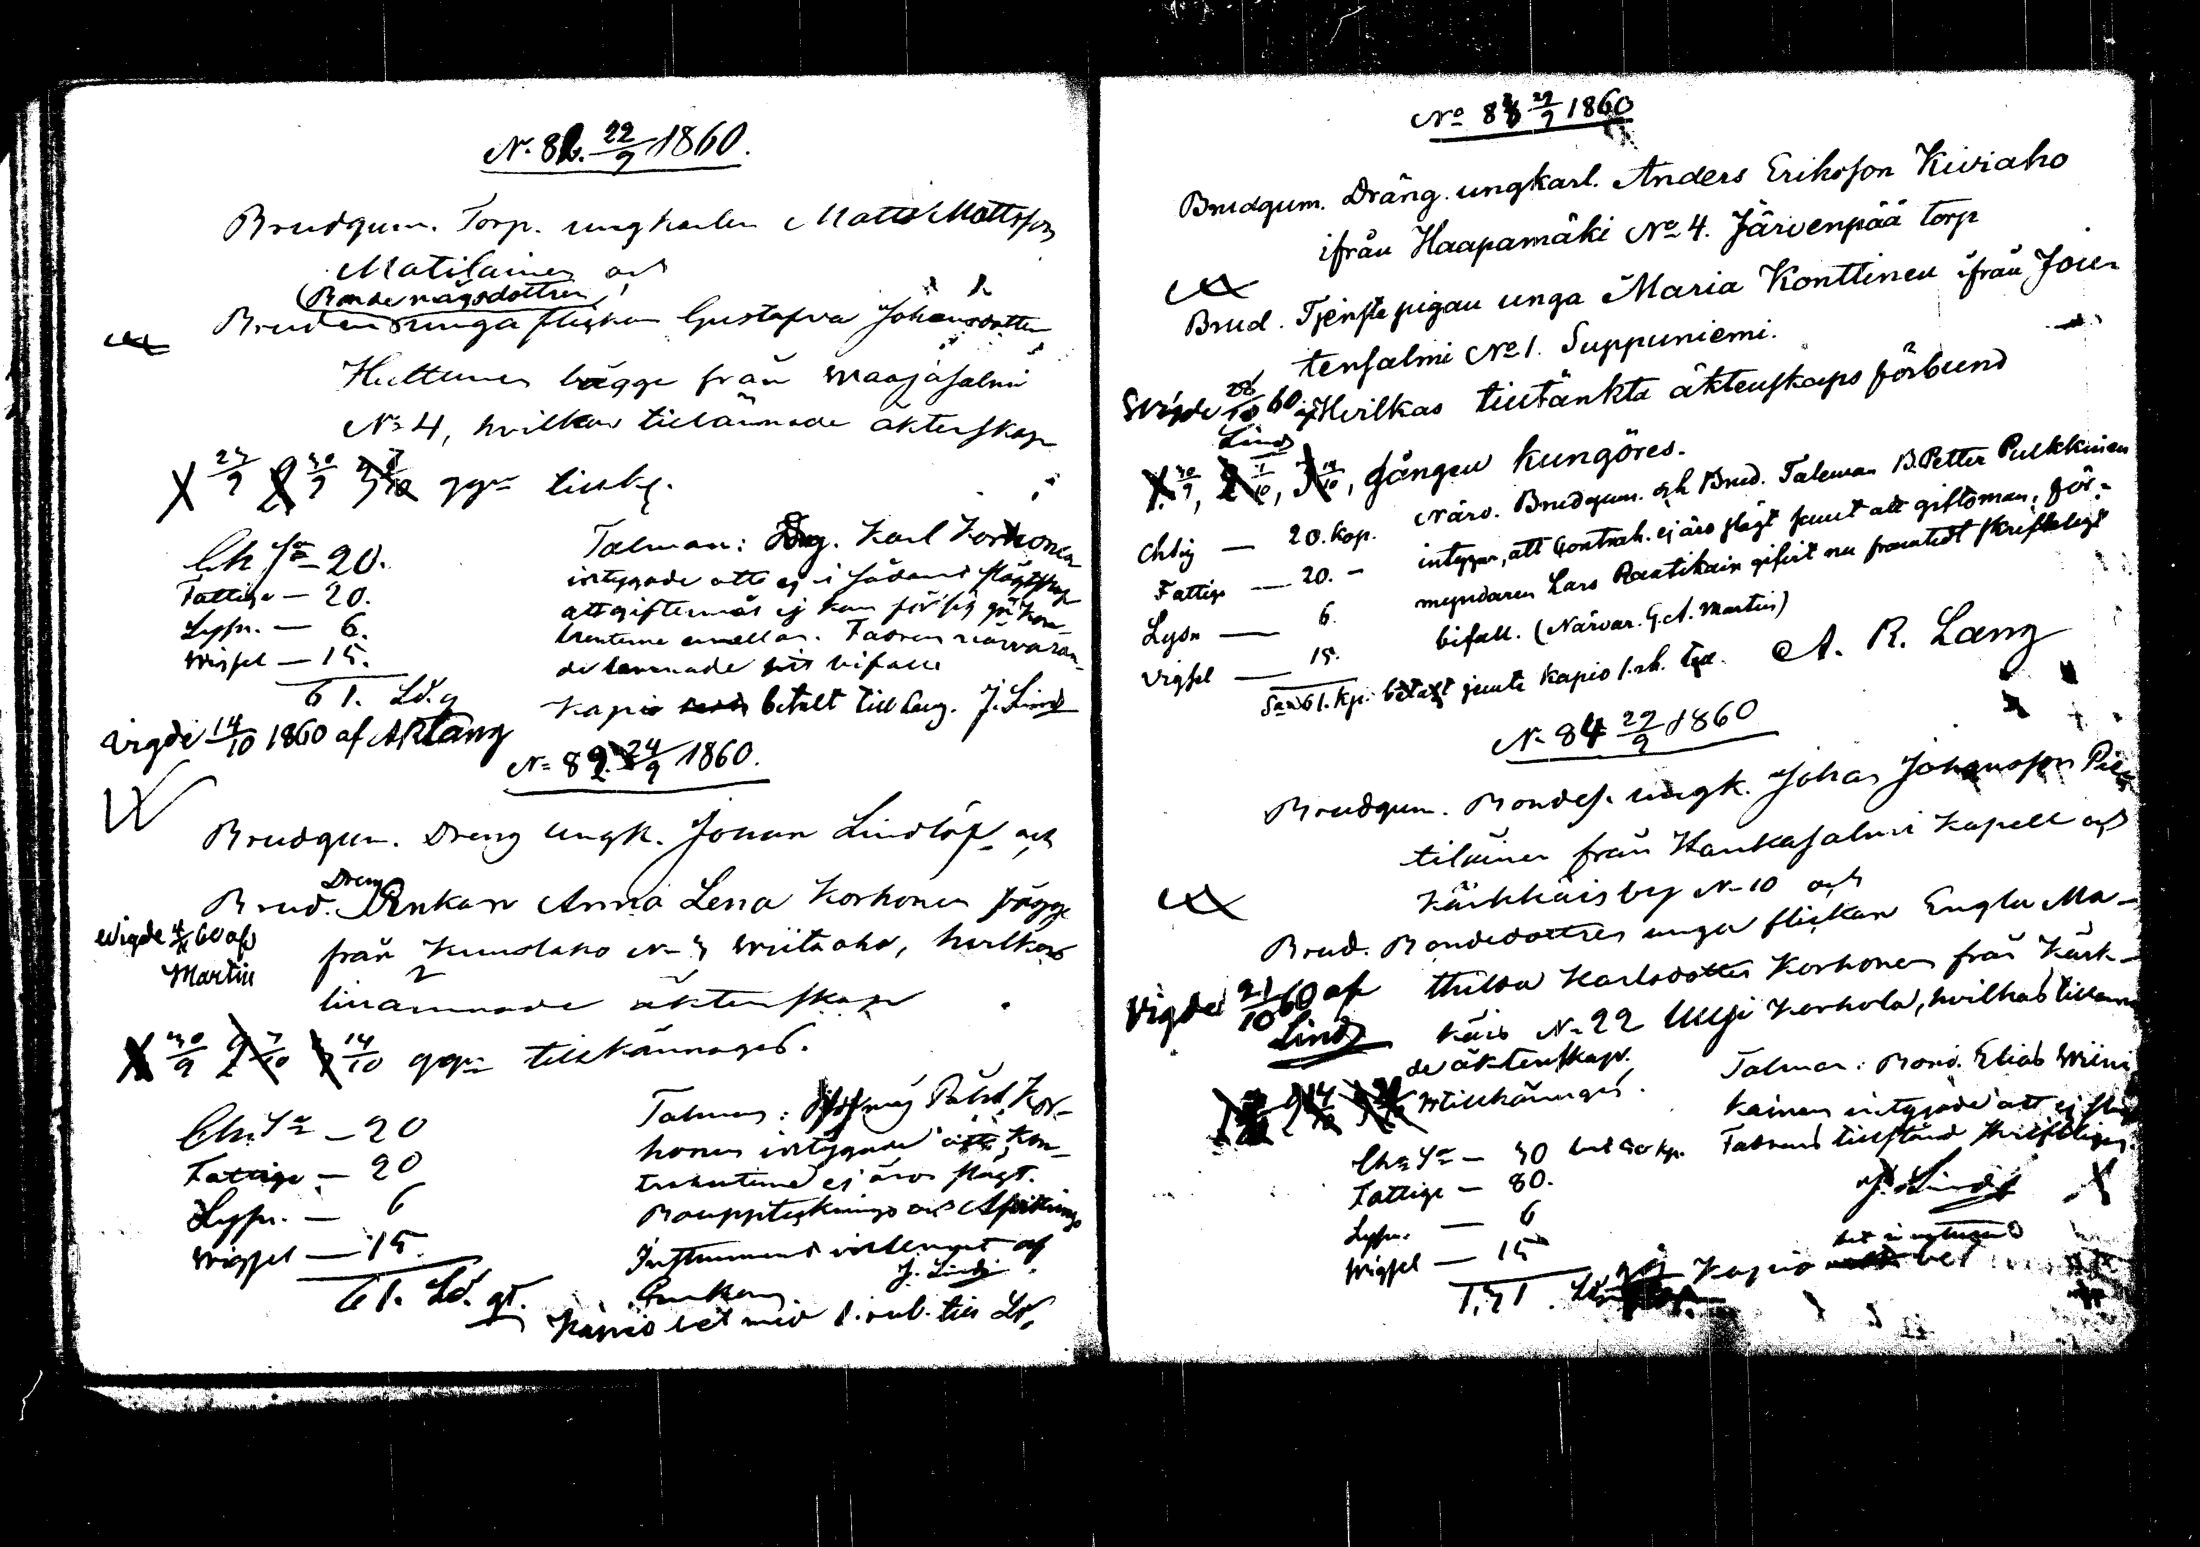 N. 81. 22/9 1860.
Brudgum. Torp. ungkarlen Matts Mattsson
Matilainen och
(Bondemågsdottren)
Bruden unga flickan Gustafva Johansdotter
Huttunen bägge från Maajasalmi
N=4, hvilkas tillämnade äktenskap
X 23/9 2 30/9 3 7/10 ggn tillkg.
Ch Sn = 20.
Fattige — 20.
Lysn. — 6.
Wigsel — 15.
61. Ld. g
Talman: Karl Korhonen
intygade att ej i sådant slägtskap
att giftermål ej kan för sig gå kon-
trenterne emellan. Fadren närvaran-
de lemnade sitt bifall
Kapio betalt till Lang. J. Lind
Vigde 14/10 1860 af AR Lang
N= 82. 24/9 1860.
Brudgum. Dreng ungk. Johan Lindlöf och
Dreng
Brud. Enkan Anna Lena Korhonen bägge
Wigde 60 af
Martin
från N= 3 Wiitaaho, hvilkas
tillämnade äktenskap
X 30/9 2 7/10 3 14/10 ggn tillkännages.
Ch. Sn — 20
Fattige — 20
Lysn. — 6
Wigsel — 15.
61. Ld. gt.
Talman: Påhl Kor-
honen intygade att kon-
trahenterne ej äro slägt.
Bouppteckning och Afvittrings
Instrument inlemnat af
Enkan. J. Lind
Kapio bet med 1. rub. till Ld.
No 83 22/9 1860
Brudgum. Dräng. ungkarl. Anders Eriksson Kiviaho
ifrån Haapamäki No 4. Järvenpää torp
Brud. Tjenstepigan unga Maria Konttinen ifrån Jou-
tensalmi No 1. Suppuniemi.
Wigde 28/10 60 af Hvilkas tilltänkta äktenskaps förbund
Lind
X 30/9, 2 7/10, 3 14/10, gången kungöres.
Chsig — 20. kop.
Fattige — 20. —
Lysn — 6.
Vigsel — 15.
Närv. Brudgum. och Brud. Taleman B. Petter Pulkkinen
intygar, att Contrah. ej äro slägt samt att giftoman, för-
myndaren Lars Rautikain gifvit nu framtedt skriftligt
bifall. (Närvar. G. A. Martin)
Sa 61. kp. betalt jemte kapio 1. rb. A. R. Lang
N= 84 22/9 1860
Brudgum. Bondes. ungk. Johan Johansson Pie-
tiläinen från Hankasalmi Kapell och
Kärkkäis by N=10 och
Brud. Bondedottren unga flickan Engla Ma-
thilda Karlsdotter Korhonen från Kärk-
Vigde 21/10 60 af
Lind
käis N= 22 Korhola, hvilkas tillämna-
de äktenskap.
tillkännages.
Ch= Sn — 30
Fattige — 80.
Lysn. — 6
Wigsel — 15
1.31.
Talman: Bond. Elias Wiini-
kainen intygade att ej slägt
Fadrens tillstånd skriftligen.
J. Lind
Kapio bet